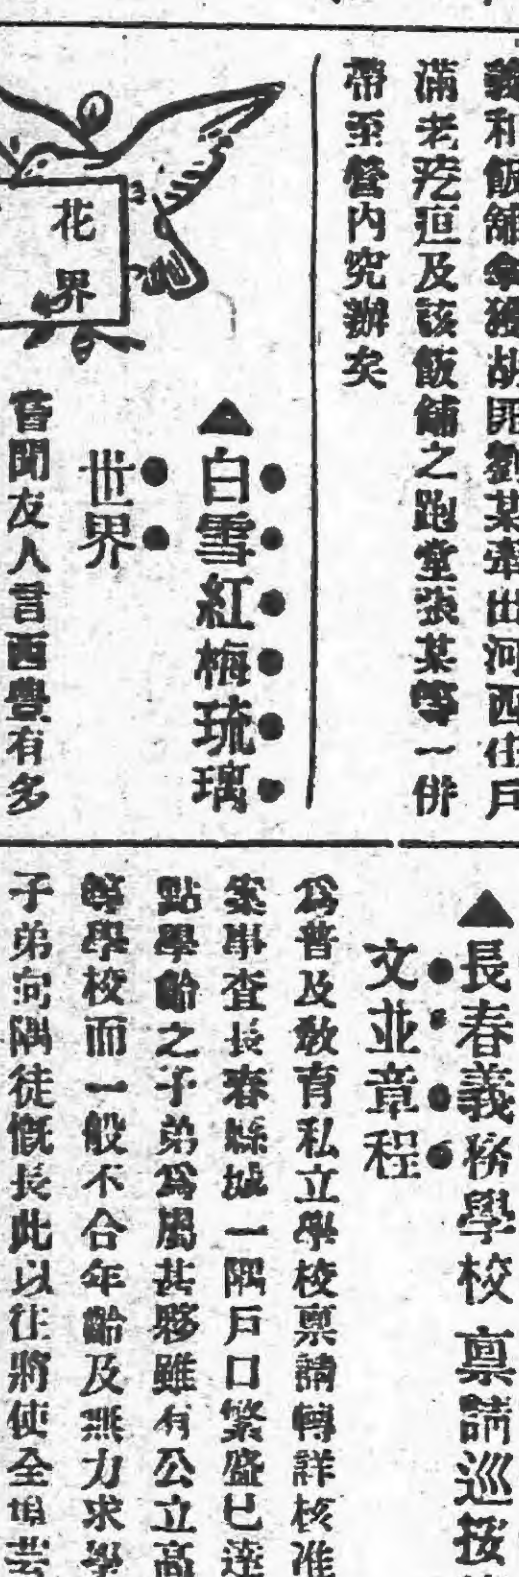 義和飯舖拿獲胡匪劉某牽出河西住戶
滿老疙疸及該飯舖之跑堂張某等一併
帶至營內究辦矣
花界
▲白雪紅梅琉璃
世界
昔聞友人言西豐有多
▲長春義務學校稟請巡按
文並章程
爲普及教育私立學校稟請轉詳核准
案事查長春縣城一隅戶口繁盛已達
點學齡之子弟爲屬甚夥雖有公立高
等學校而一般不合年齡及無力求學
子弟向隅徒慨長此以往將使全埠芸